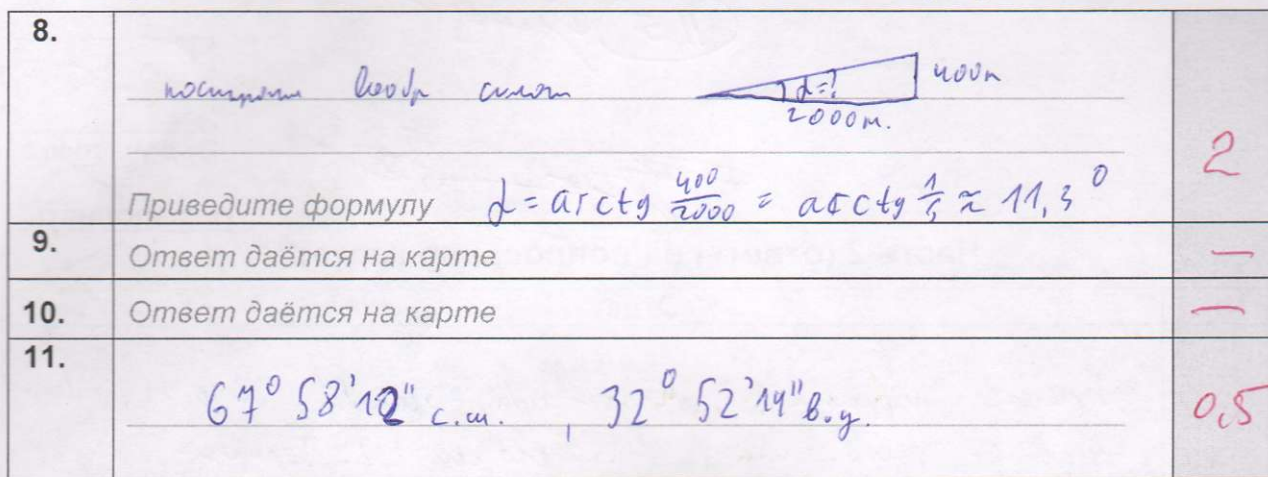 8.
400м
α=?
2000м.
2
Приведите формулу α = arctg 400/2000 = arctg 1/5 ≈ 11,3°
9. Ответ даётся на карте —
10. Ответ даётся на карте —
11.
67° 58' 12" с.ш. , 32° 52' 14" в.д. 0,5